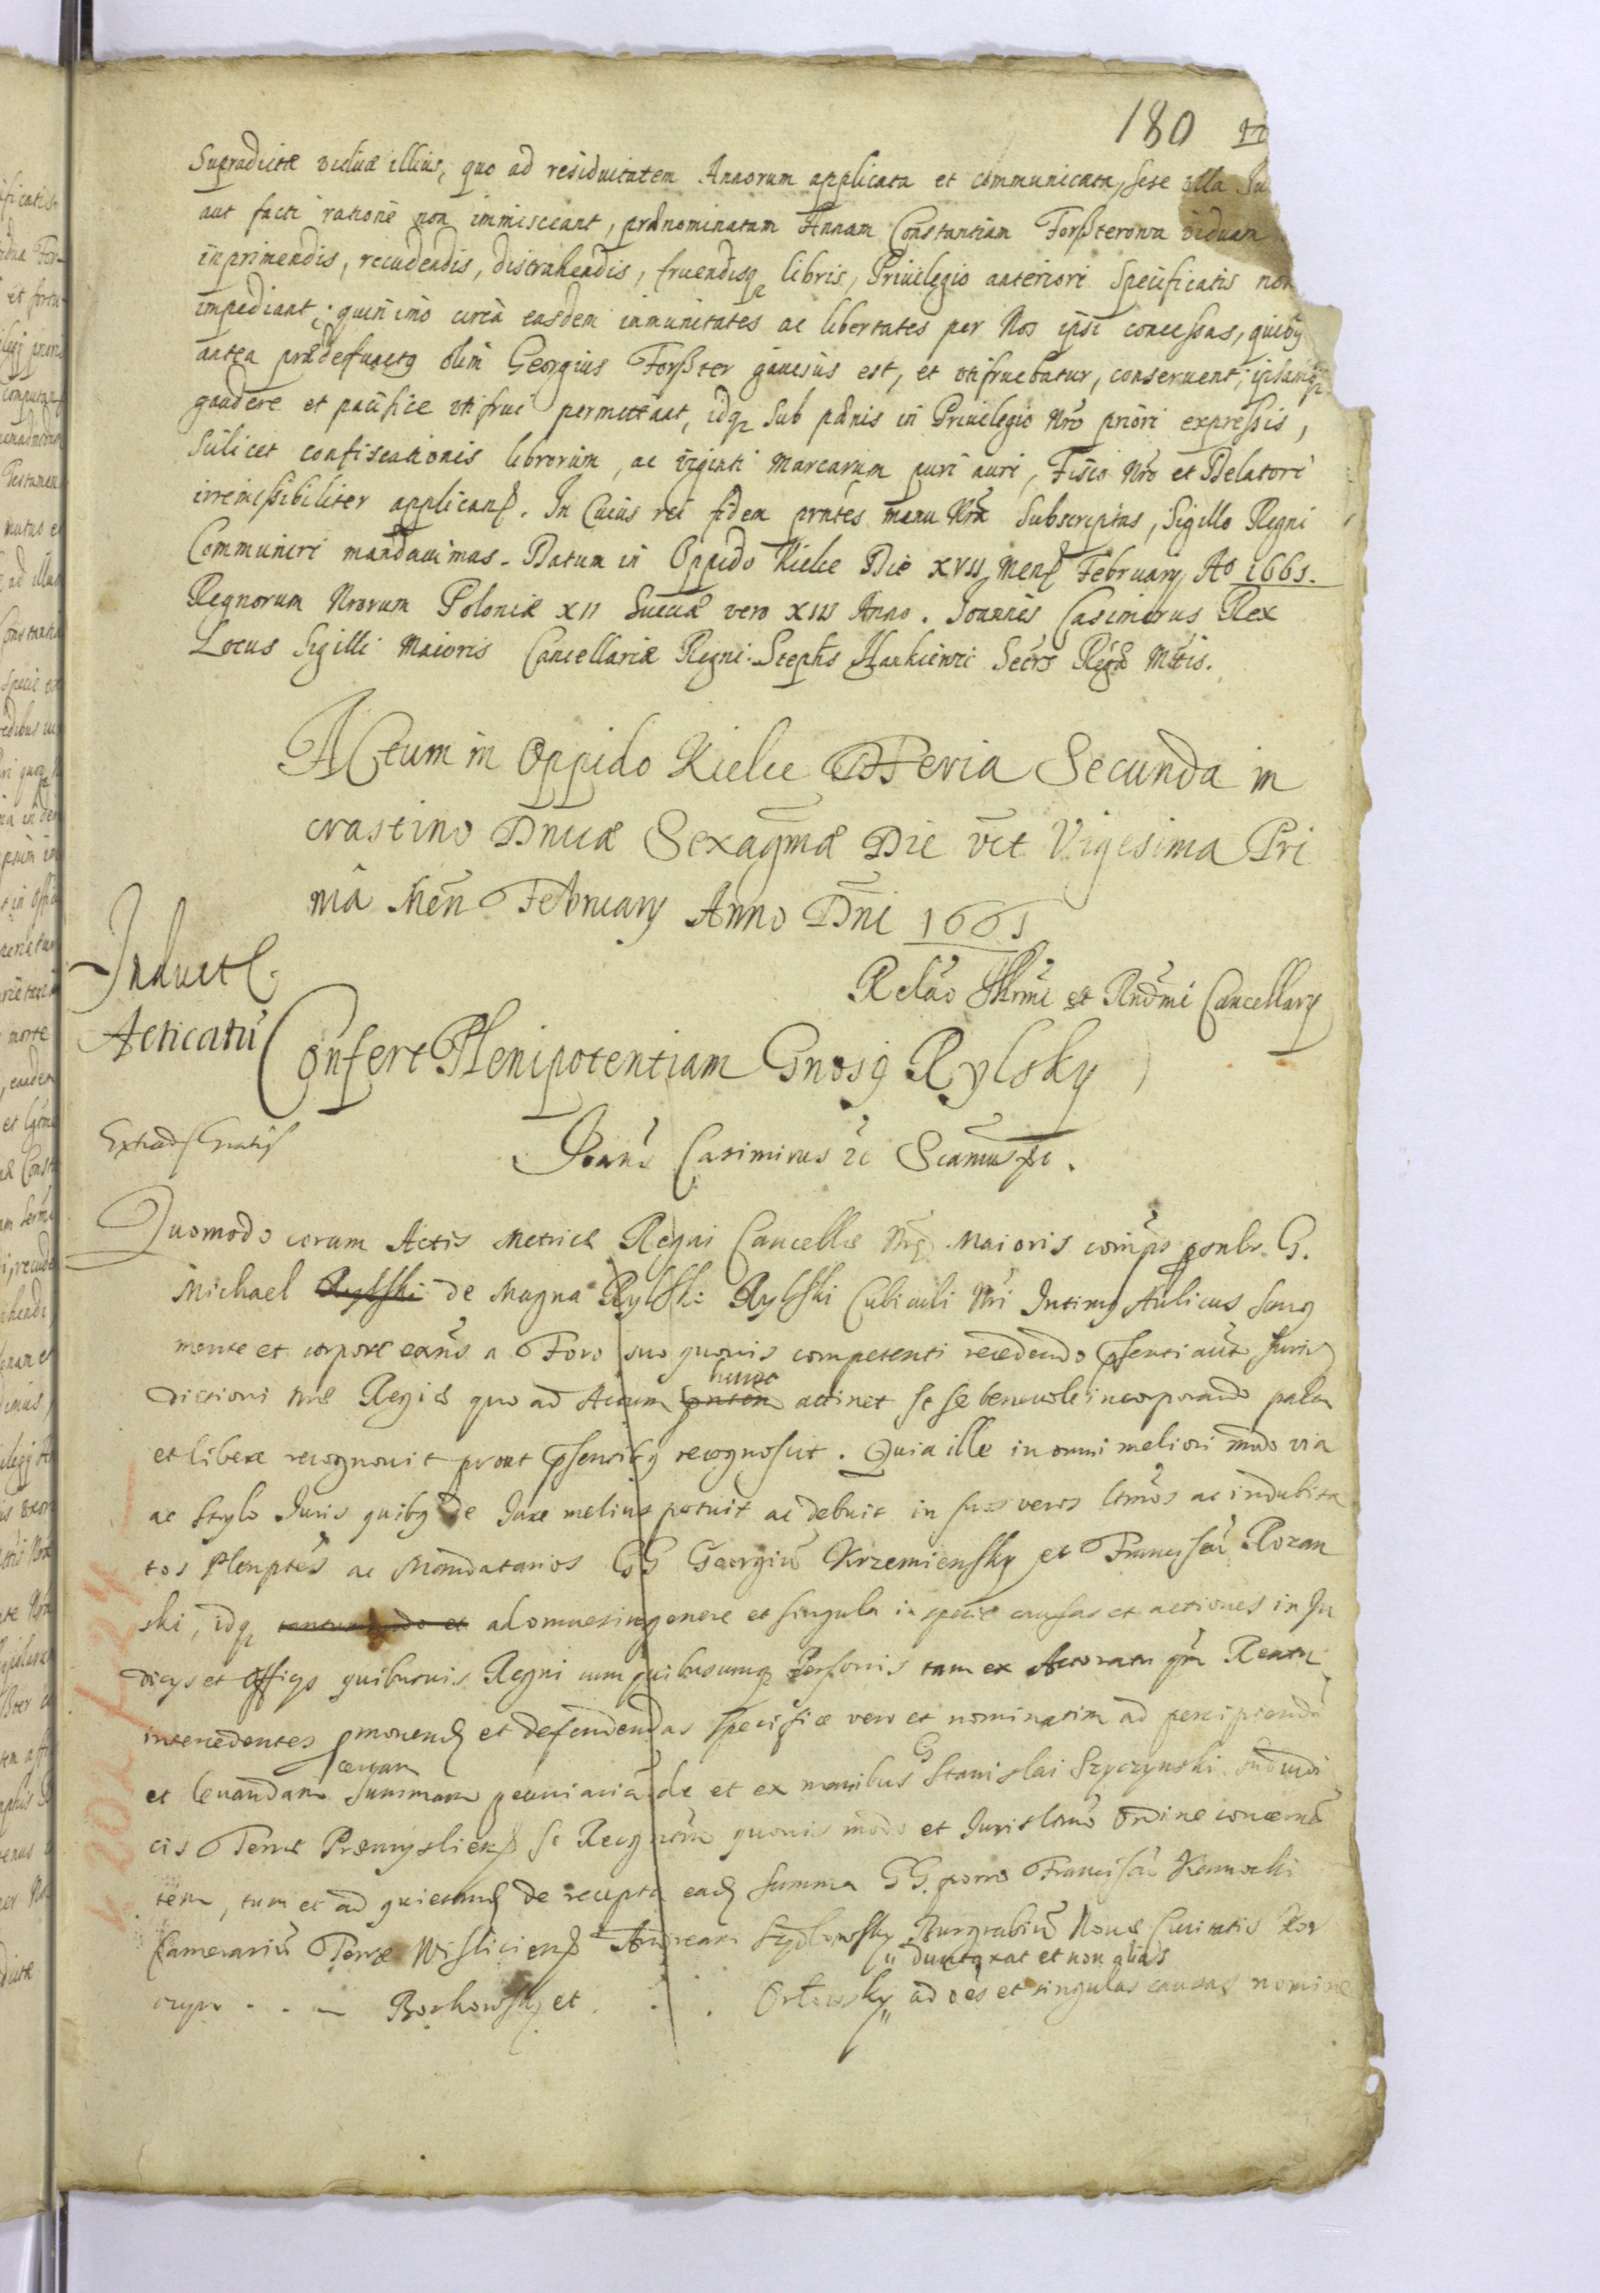 180
Supradictæ viduæ illius, quo ad residuitatem Annorum applicata et communicata, sese ulla Ju
aut facti ratione non immisceant, prænominatam Annam Constantiam Forßterowa viduam
inprimendis, recudendis, distrahendis, fruendisq libris, Priuilegio anteriori specificatis non
impediant; quin imò circà easdem inmunitates ac libertates per Nos ipsi concessas, quibq
antea prædefunctq olim Georgius Forßter gauisus est, et vtifruebatur, conseruent, ipsamq
gaudere et pacifice vtifrui permittant, idq sub pænis in Priuilegio Nrō priori expressis,
scilicet confiscationis librorum, ac viginti Marcarum puri auri, Fisco Nrō et Delatori
irremissibiliter applican. In Cuius rei fidem prntes manu Nrā Subscriptas, Sigillo Regni
Communiri mandauimus. Datum in Oppido Kielce Die XVII Mens February Aº 1661.
Regnorum Nrorum Poloniæ XII Sueciæ vero XIII Anno. Joannes Casimirus Rex
Locus Sigilli Maioris Cancellariæ Regni. Stephs Hankiewicz Secrs Regæ Mtis.
Actum in Oppido Kielce Feria Secunda in
crastino Dnicæ Sexagmæ Die vct Vigesima Pri
mâ Men February Anno Dni 1661
Induct
Relāo Illrmi et Rndmi Cancellary
Acticatū
Confert Plenipotentiam Gnosq Rylsky
Extrad Gratis
Joans Casimirus &c
Quomodo coram Actis Metricæ Regni Cancellæ Nræ Maioris compns psonlr G.
Michael Rylski de Magna Rylski Rylski Cubiculi Nri Intimq Aulicus sanq
mente et corpore exns a Foro suo quouis competenti recedendo psenti aut Juris
dictioni Nræ Regiæ quo ad Actum hunc attinet se beneuole incorporando palam
et libere recognouit prout psentibq recognoscit. Quia ille in omni meliori modo via
ac stylo Juris quibq de Jure melius potuit ac debuit in suos veros ltmos ac indubita
tos Plenptes ac Mandatarios GG Georgiū Krzemiensky et Francisū Rozan
ski, idq ad omnes in genere et singula in specie causas et actiones in Ju
dicys et Officys quibusuis Regni cum quibusuis personis tam ex Actoratu qm Reatu
intercedentes pmouend et defendendas specifice vero et nominatim ad percipiendā
et leuandam certam summam pecuniariā de et ex manibus G Stanislai Szyczynski Subiudi
cis Terræ Præmyslien quouis modo et Juris ltmo ordine concernē
tem, tum et ad quietand de recepta ead summa GG. porro Francisū
Camerariū Terræ Wislicien Andream Szydlowsky Burgrabiū Nouæ Ciuitatis Kor
" duntaxat et non alias
czyn . . . Borkowsky et . . . Orlowsky " ad oēs et singulas causas nomine